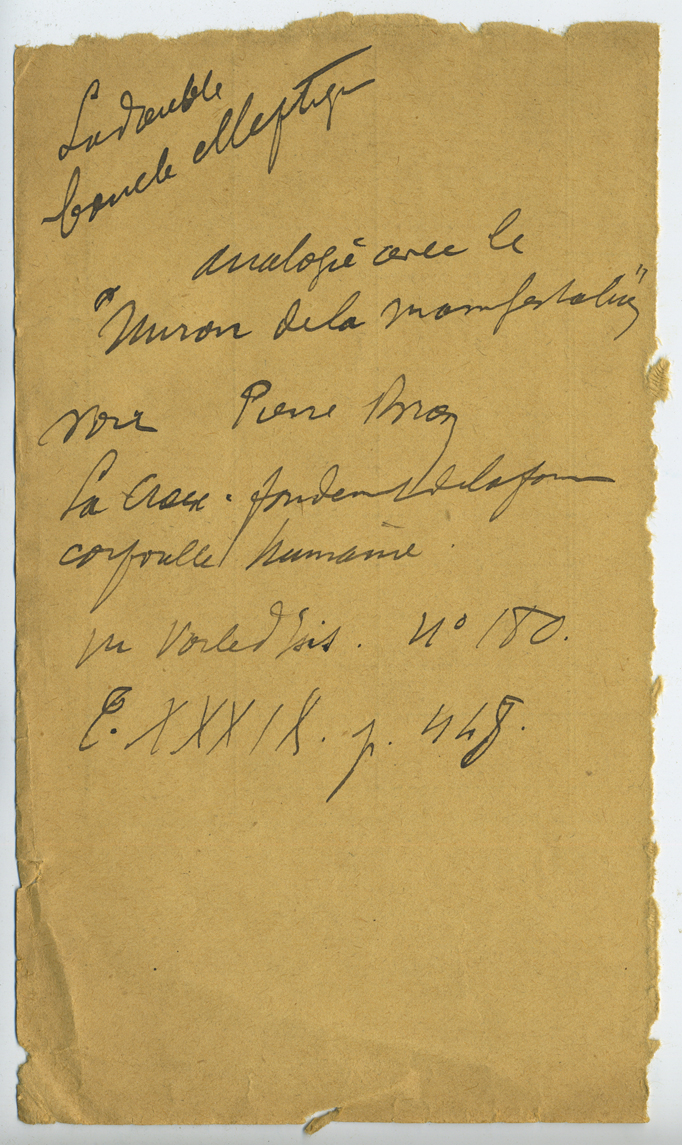 La double
boucle elleptique
analogie avec le
"Miroir de la manifestation"
voir Pierre
La Croix - fondement de la forme
corporelle humaine.
in Voile d'Isis. N° 180.
T. XXXIX. p. 448.